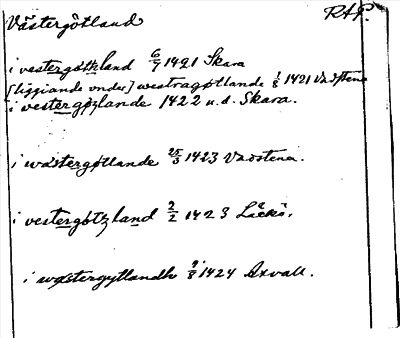 Västergötland RAP.
i vestergøtzland 6/7 1421 Skara
[liggiande vnder] westragøtlande 1/8 1421 Vadstena
i vestergøzlande 1422 u.d. Skara.
i wæstergøtlande 25/3 1423 Vadstena.
i vestergøtzland 2/2 1423 Läckö.
i wæstergytlandh 9/8 1424 Axvall.